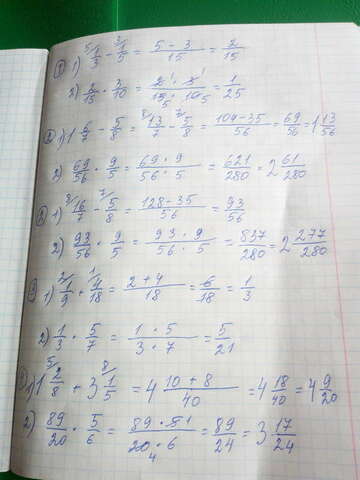 ① 1) ⁵⁄1/3 - ³⁄1/5 = (5 - 3)/15 = 2/15
2) 2/15 · 3/10 = (2¹ · 3¹)/(15₅ · 10₅) = 1/25
② 1) 1 ⁸⁄6/7 - ⁷⁄5/8 = 13/7 - 5/8 = (104 - 35)/56 = 69/56 = 1 13/56
2) 69/56 · 9/5 = (69 · 9)/(56 · 5) = 621/280 = 2 61/280
③ 1) ⁸⁄16/7 - ⁷⁄5/8 = (128 - 35)/56 = 93/56
2) 93/56 · 9/5 = (93 · 9)/(56 · 5) = 837/280 = 2 277/280
④ 1) ²⁄1/9 + ¹⁄4/18 = (2 + 4)/18 = 6/18 = 1/3
2) 1/3 · 5/7 = (1 · 5)/(3 · 7) = 5/21
1) 1 ⁵⁄2/8 + 3 ⁸⁄1/5 = 4 (10 + 8)/40 = 4 18/40 = 4 9/20
2) 89/20 · 5/6 = (89 · 5¹)/(20₄ · 6) = 89/24 = 3 17/24